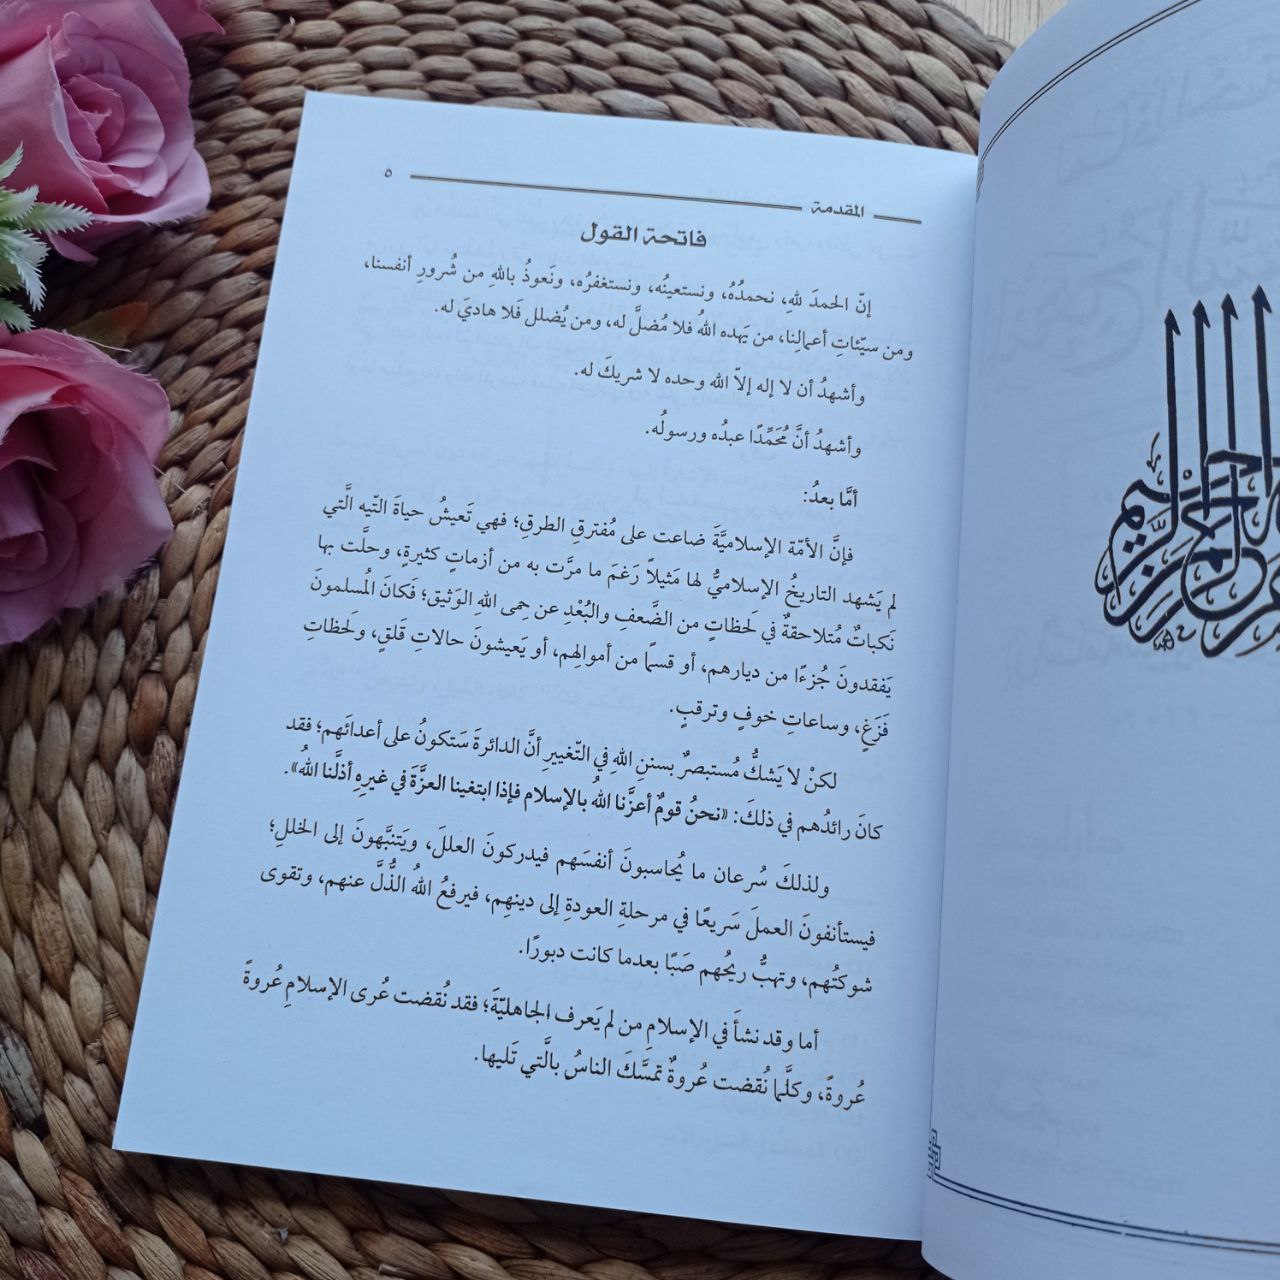 المقدمة ٥
فاتحة القول
إنّ الحمدَ للهِ، نحمدُهُ، ونستعينُه، ونستغفرُه، ونَعوذُ باللهِ من شُرورِ أنفسنا،
ومن سيّئاتِ أعمالِنا، من يَهده اللهُ فلا مُضلَّ له، ومن يُضلل فَلا هاديَ له.
وأشهدُ أن لا إله إلاّ الله وحده لا شريكَ له.
وأشهدُ أنَّ مُحَمَّدًا عبدُه ورسولُه.
أمَّا بعدُ:
فإنَّ الأمّة الإسلاميَّةَ ضاعت على مُفترقِ الطرقِ؛ فهي تَعيشُ حياةَ التّيه الَّتي
لم يَشهد التاريخُ الإسلاميُّ لها مَثيلاً رَغمَ ما مرَّت به من أزماتٍ كثيرةٍ، وحلَّت بها
نَكباتٌ مُتلاحقةٌ في لَحظاتٍ من الضَّعفِ والبُعْدِ عن حِمى اللهِ الوَثيق؛ فَكانَ المُسلمونَ
يَفقدونَ جُزءًا من ديارهم، أو قسمًا من أموالِهم، أو يَعيشونَ حالاتِ قَلقٍ، ولَحظاتِ
فَزَغٍ، وساعاتِ خوفٍ وترقبٍ.
لكنْ لا يَشكُّ مُستبصرٌ بسننِ اللهِ في التّغييرِ أنَّ الدائرةَ سَتكونُ على أعدائَهم؛ فقد
كانَ رائدُهم في ذلكَ: «نحنُ قومٌ أعزَّنا اللهُ بالإسلام فإذا ابتغينا العزَّةَ في غيرِهِ أذلَّنا اللهُ».
ولذلكَ سُرعان ما يُحاسبونَ أنفسَهم فيدركونَ العللَ، ويَتنبَّهونَ إلى الخللِ؛
فيستأنفونَ العملَ سَريعًا في مرحلةِ العودةِ إلى دينهِم، فيرفعُ اللهُ الذُّلَّ عنهم، وتقوى
شوكتُهم، وتهبُّ ريحُهم صَبًا بعدما كانت دبورًا.
أما وقد نشأَ في الإسلامِ من لم يَعرف الجاهليّةَ؛ فقد نُقضت عُرى الإسلامِ عُروةً
عُروةً، وكلَّما نُقضت عُروةٌ تمسَّكَ الناسُ بالَّتي تَليها.